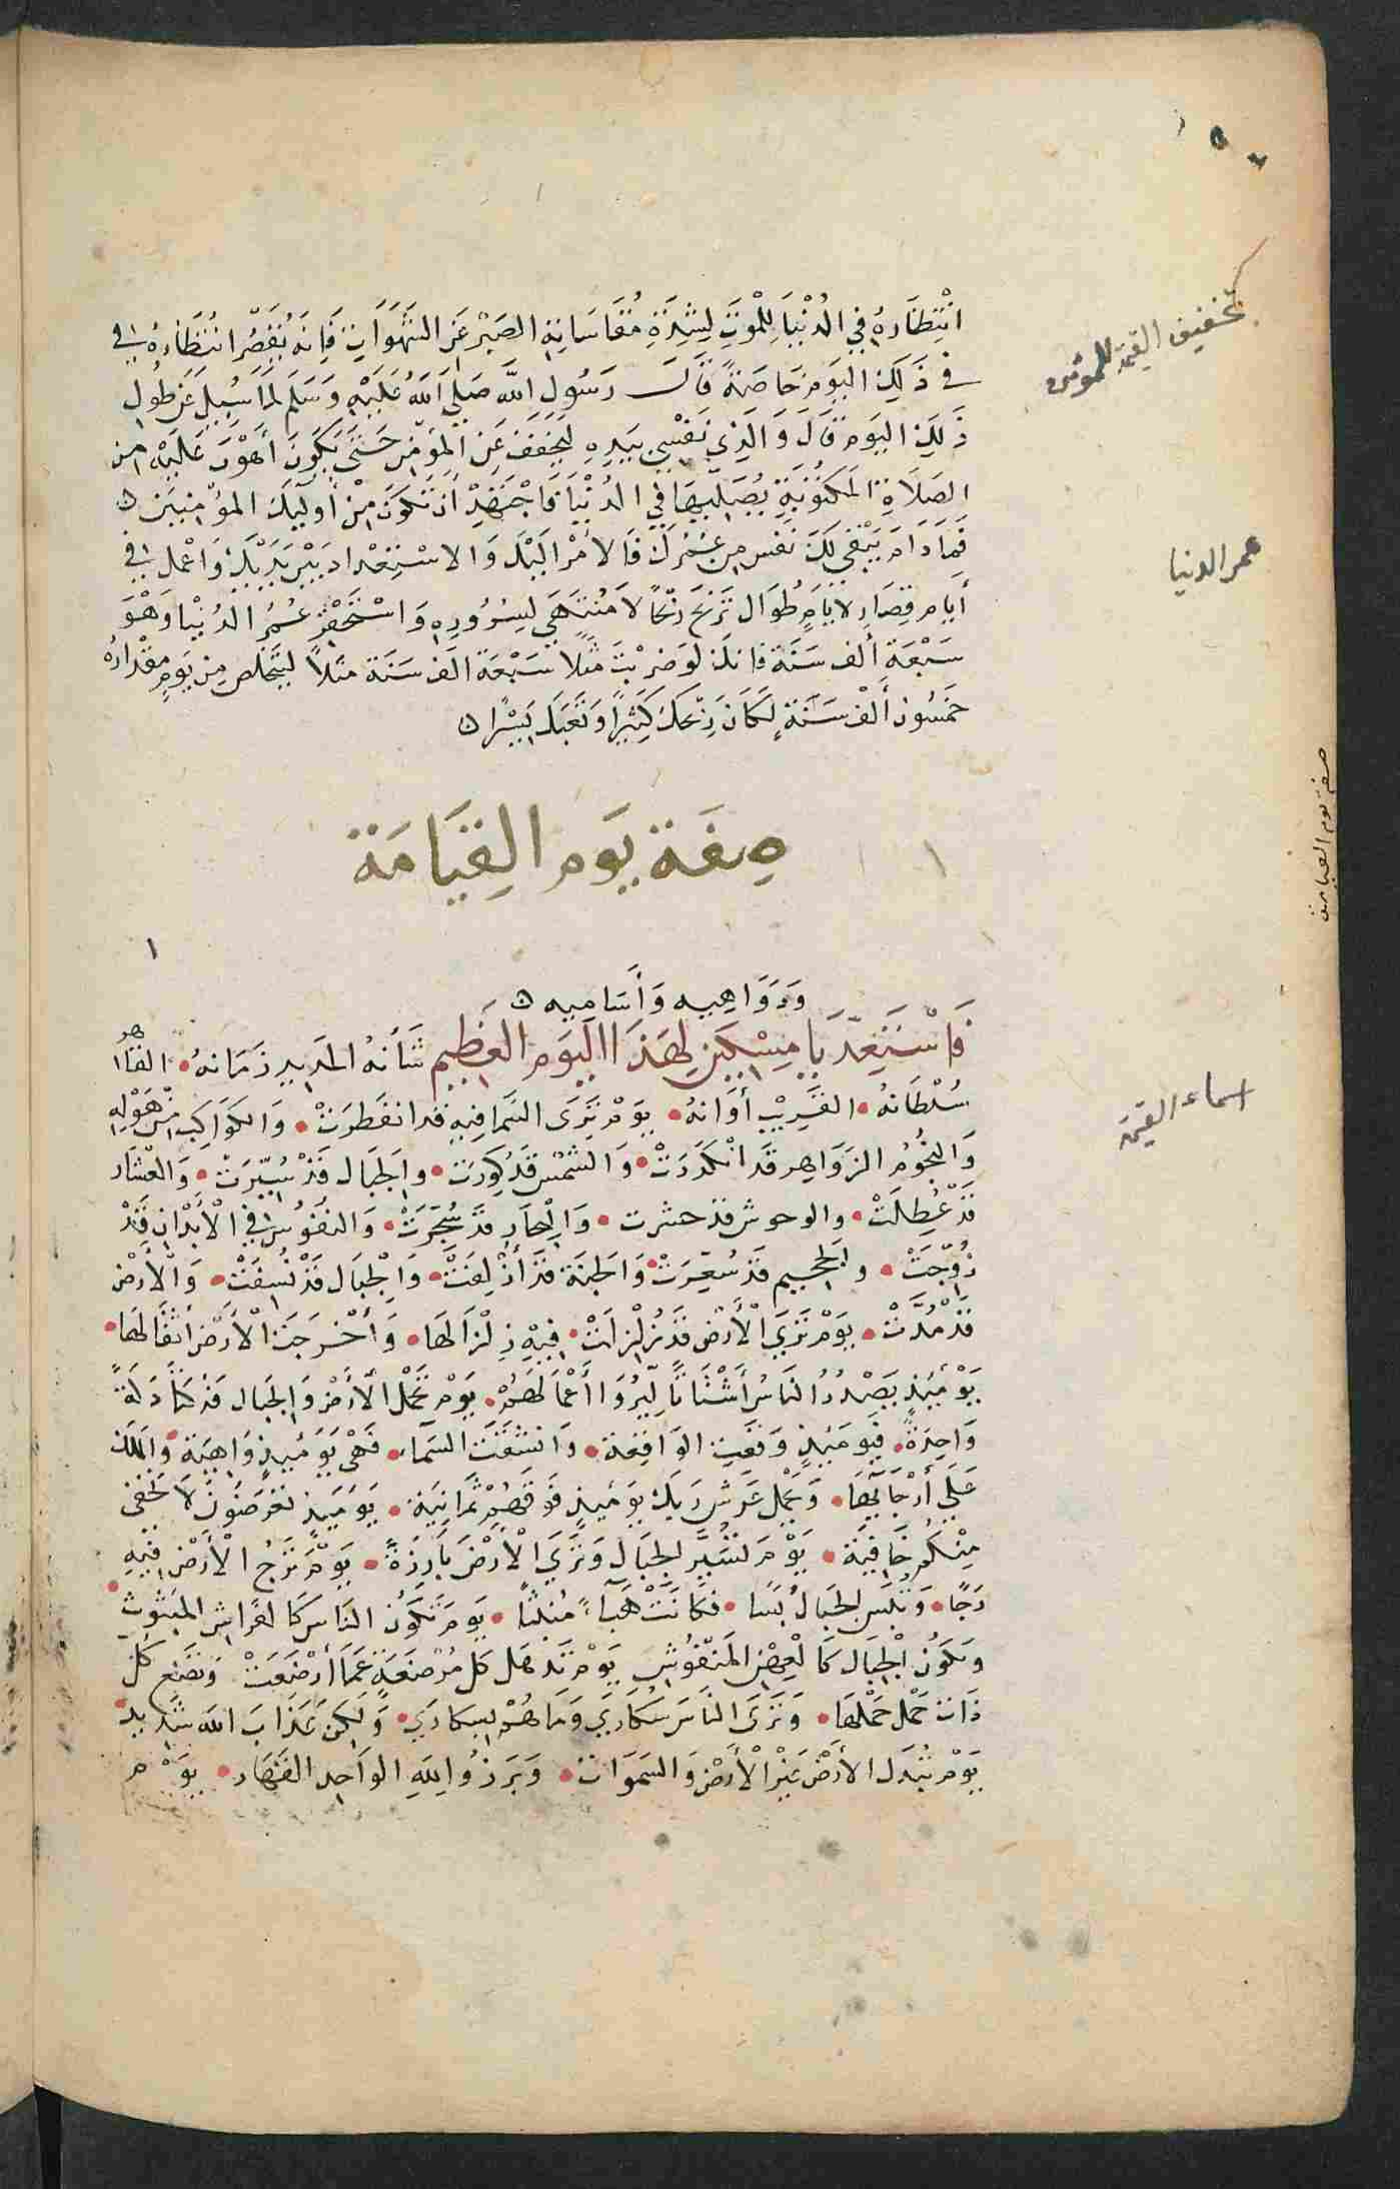 تخفيف القيمة للمؤمن
انْتِظَارُهُ فِي الدُّنْيَا لِلْمَوتِ لِشِدَّةِ مُقَاسَاتِهِ الصَبْر عَن الشَهَوَاتِ فَإِنَهُ يُقَصِّر انْتِظَارهُ في
في ذَلِكَ اليَوم خَاصَةً قَالَ رَسُول اللَّه صَلَى اللَهُ عَلَيْهِ وَسَلَم لمَا سُيِلَ عَن طُولِ
ذَلِكَ اليَوم قَالَ وَالَذِي نَفْسِي بِيَدِهِ لَيُخَفَفُ عَن المُؤمِن حَتَى يَكُونَ أَهْوَنَ عَلَيْهِ من
الصَلَاةِ المَكتُوبَةِ يُصَلِيهَا فِي الدُنْيَا فَاجْتَهِدْ أَن تَكُونَ مِنْ أُولَيِكَ المُؤْمِنِينَ ٥
فَمَا دَامَ يَبْقَى لَكَ نَفَس مِن عُمُرِكَ فَالأَمْر الَيْكَ وَالاسْتِعْدَاد بَيْن يَدَيْكَ وَاعْمل في
عمر الدنيا
أَيَامٍ قِصَارٍ لأَيَامٍ طُوَال تَرْبَح رِبْحًا لاَ مُنْتَهَى لِسُرُورِهِ وَاسْتَحْقِرْ عُمُر الدُنْيَا وَهْوَ
سَبْعَةِ أَلف سَنَة فَانَكَ لَو صَبَرْتَ مَثَلاً سَبْعَة الَف سَنَة مَثَلاً لِتَخَلص مِن يَومٍ مِقْدَارهُ
خَمسُون أَلْف سَنَةٍ لَكَانَ رِبْحكَ كَثِيرًا وَتَعَبَك يَسِيْرًا ٥
صفة يوم القيامة
صِفَة يَوم القِيَامَة
وَدَوَاهِيه وَأَسَامِيه ٥
فَاسْتَعِدّ يَا مِسْكِين لِهَذَا اليَوم العَظِيم شَأنهُ المَدِيدِ زَمَانهُ • القَاهر
اسماء القيمة
سُلْطَانهُ • القَرِيْب أَوَانهُ • يَوْمَ تَرَى السَّمَا فِيهِ قد انفَطَرَتْ • وَالكَوَاكِب مِنْ هَوْلِهِ
وَالنُجُوُم الزَوَاهِر قَد انْكَدَرَتْ • وَالشَمْس قَد كُوِرَت • وَالجِبَال قَدْ سُيِّرَتْ • وَالعْشَار
قَدْ عُطِلَتْ • والوحوش قد حشرت • وَالبِحَار قَد سُجِّرَتْ • وَالنفُوُس في الأَبْدَان قَدْ
زُوِّجَتْ • وَالجَحِيم قَدْ سُعِّرَتْ • وَالجَنَة قَدْ أُزْلِفَتْ • وَالجِبَال قَدْ نُسِفَتْ • وَالأَرْض
قَدْ مُدَّتْ • يَوْمَ تَرَى الأَرْض قَدْ زُلْزِلَتْ • فِيْهِ زِلْزَالهَا • وَأَخْرَجَت الأَرْض أَثْقَالهَا •
يَوْمَيِذٍ يَصْدُرُ النَاسُ أَشْتَاتًا لِيُرُوا أَعْمَالَهُمْ • يَوْم تُحْمَل الأَرْض وَالجِبَال فَدُكَتَا دَكَةً
وَاحِدَةً • فَيَومَيِذٍ وَقَعَتِ الوَاقِعَة • وَانشَقَتَ السَمَآء • فَهْيَ يَوْمَيِذٍ وَاهِيَة • وَالمَلَك
عَلَى أَرْجَآيِهَا • وَيَحْمِل عَرْش رَبِكَ يَومَيِذٍ فَوقَهُمْ ثَمَانِيَة • يَومَيِذٍ تعْرَضُونَ لاَ تَخْفَى
مِنْكُم خَافِيَة • يَوْمَ تُسَيَّر الجِبَال وَتَرَى الأَرْضَ بَارِزَةً • يَوْمَ تُرَجُ الأَرْض فِيْهِ
رَجًا • وَتُبَس الجِبَالُ بَسًا • فَكَانَتْ هَبَآءً مُنْبثًا • يَومَ تَكُونُ النَاس كَالفَرَاشِ المَبْثُوثِ •
وَتَكُوُن الجِبَال كَالعِهْنِ المَنْفُوُشِ يَوْمَ تَذهَل كُل مُرْضِعَةٍ عَمَا أَرْضَعَتْ وَتَضَع كُل
ذَات حَمْلٍ حَمْلَهَا • وَتَرَى النَاسَ سُكَارَى وَمَا هُمْ بِسكَارَى • وَلَكِنَ عَذَابَ الله شَدِيد •
يَوْمَ تُبَدَل الأَرْض غَيْر الأَرْض وَالسَمَوَات • وَبَرَزُوا لِلَهِ الوَاحِد القَهَار • يَوْم